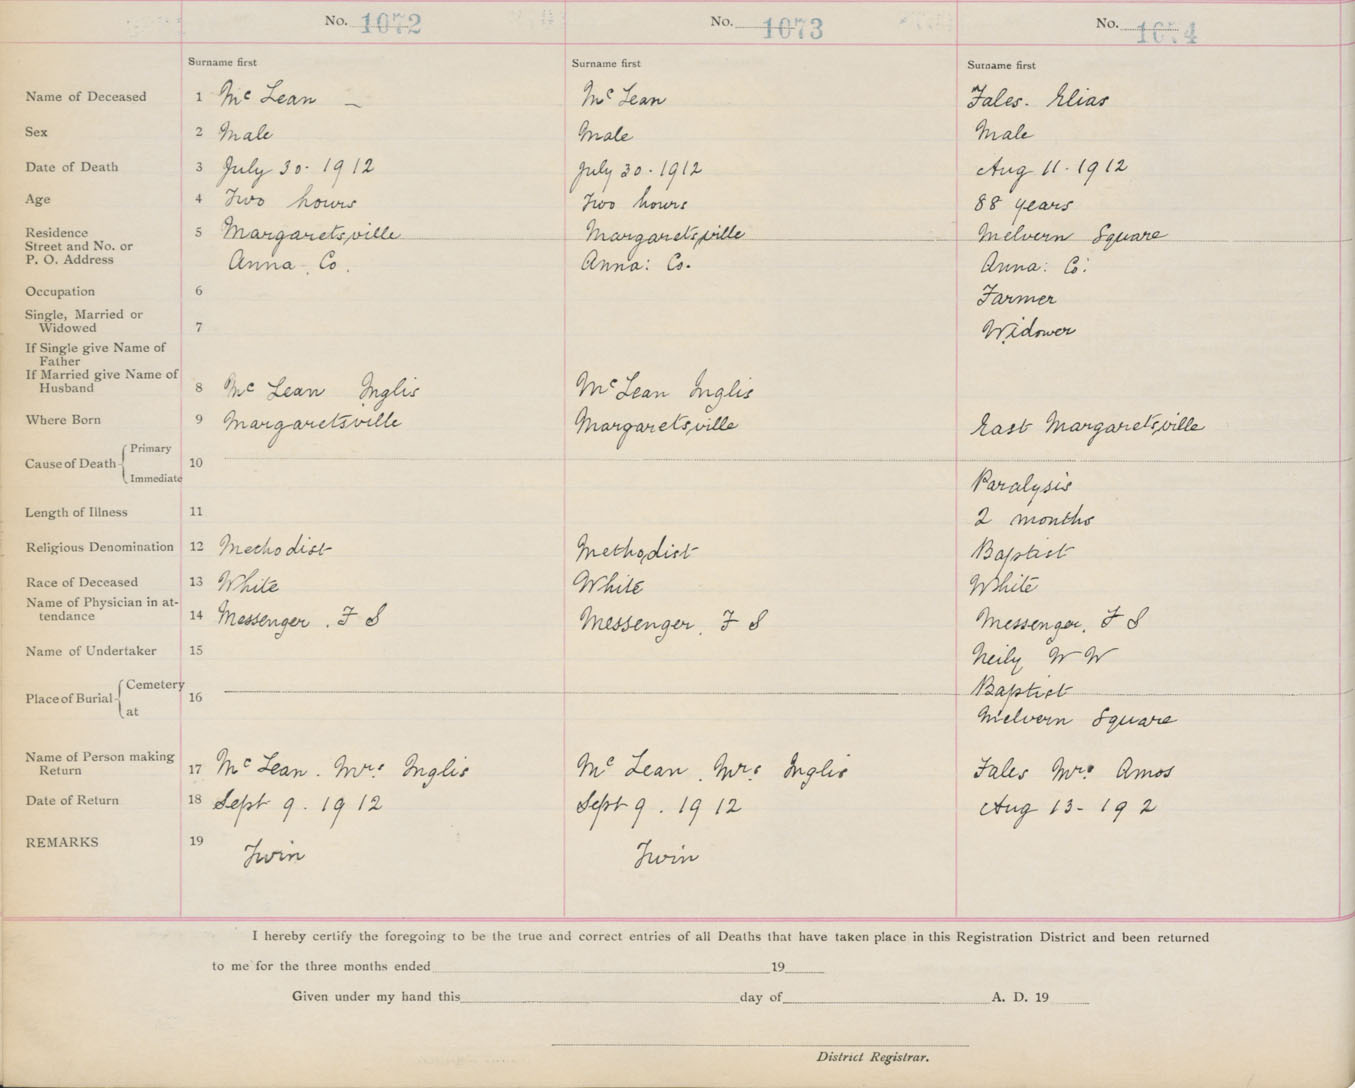 No. 1072 No. 1073 No. 1074
Surname first Surname first Surname first
Name of Deceased 1 McLean — McLean Fales. Elias
Sex 2 Male Male Male
Date of Death 3 July 30. 1912 July 30. 1912 Aug 11. 1912
Age 4 Two hours Two hours 88 years
Residence 5 Margaretsville Margaretsville Melvern Square
Street and No. or
P. O. Address Anna. Co. Anna: Co. Anna: Co:
Occupation 6 Farmer
Single, Married or
Widowed 7 Widower
If Single give Name of
Father
If Married give Name of
Husband 8 McLean Inglis McLean Inglis
Where Born 9 Margaretsville Margaretsville East Margaretsville
Cause of Death Primary
10
Immediate Paralysis
Length of Illness 11 2 months
Religious Denomination 12 Methodist Methodist Baptist
Race of Deceased 13 White White White
Name of Physician in at-
tendance 14 Messenger. F S Messenger. F S Messenger. F S
Name of Undertaker 15 Neily W W
Place of Burial Cemetery 16 Baptist
at Melvern Square
Name of Person making
Return 17 McLean. Mrs Inglis McLean. Mrs Inglis Fales Mrs Amos
Date of Return 18 Sept 9. 1912 Sept 9. 1912 Aug 13- 192
REMARKS 19 Twin Twin
I hereby certify the foregoing to be the true and correct entries of all Deaths that have taken place in this Registration District and been returned
to me for the three months ended 19
Given under my hand this day of A. D. 19
District Registrar.